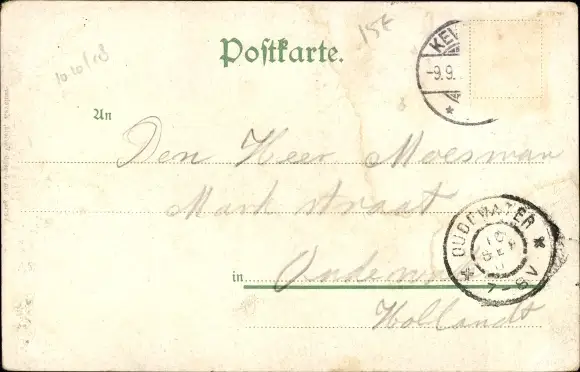 15€
Postkarte.
KEV
-9.9.
An
Den Heer Moesman
Markstraat
OUDEWATER
10
SEP
7-8V
in
Oudew
Hollandt